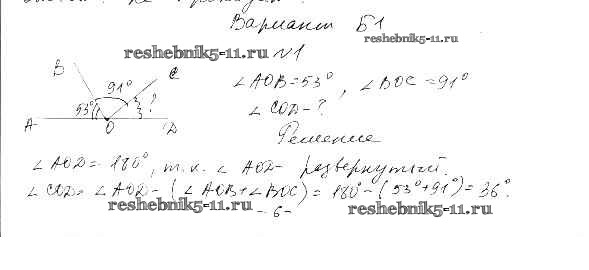 Вариант Б1
reshebnik5-11.ru
reshebnik5-11.ru №1
B C
91°
53° ?
A O D
∠AOB=53°, ∠BOC=91°
∠COD-?
Решение
∠AOD=180°, т.к. ∠AOD- развернутый.
∠COD=∠AOD-(∠AOB+∠BOC)=180°-(53°+91°)=36°.
reshebnik5-11.ru -6- reshebnik5-11.ru